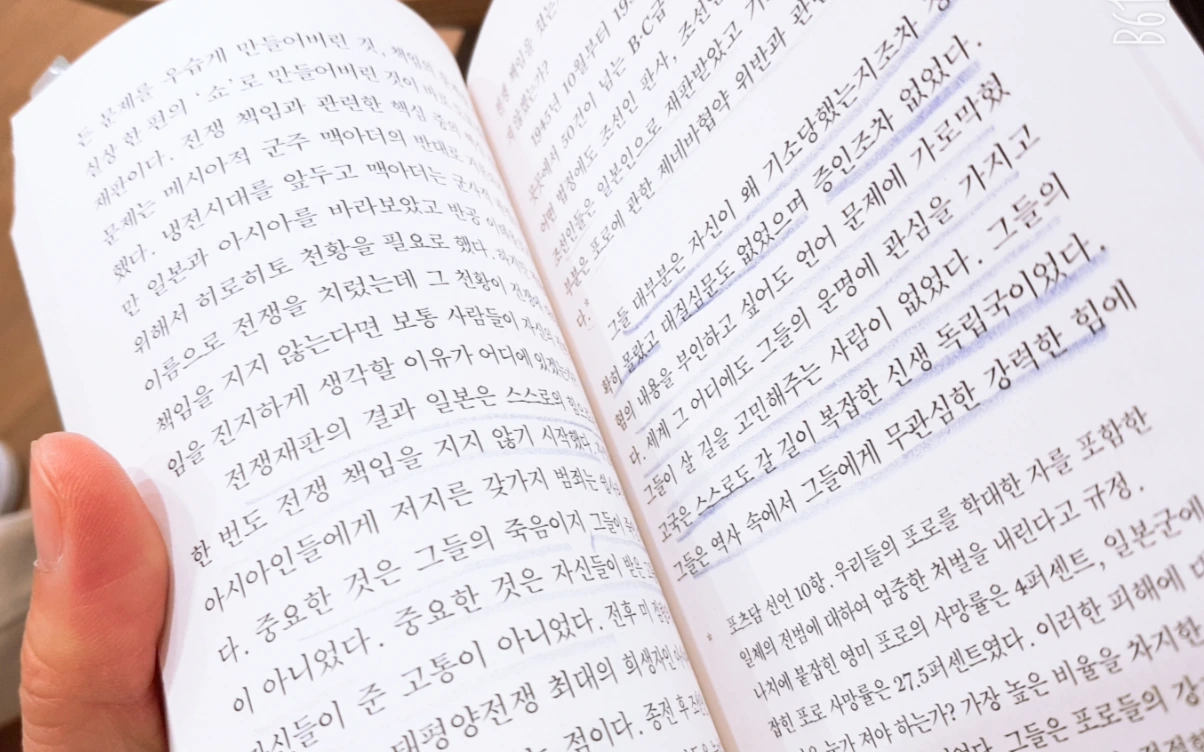 든 문제를 우습게 만들어버린 것, 책임의
실상 한 편의 '쇼'로 만들어버린 것이 바로
재판이다. 전쟁 책임과 관련한 핵심 중의
문제는 메시아적 군주 맥아더의 반대로
했다. 냉전시대를 앞두고 맥아더는
만 일본과 아시아를 바라보았고 반공
위해서 히로히토 천황을 필요로 했다.
이름으로 전쟁을 치렀는데 그 천황이
책임을 지지 않는다면 보통 사람들이
임을 진지하게 생각할 이유가 어디에
전쟁재판의 결과 일본은 스스로의
한 번도 전쟁 책임을 지지 않기 시작했다.
아시아인들에게 저지른 갖가지 범죄는
다. 중요한 것은 그들의 죽음이지 그들이
이 아니었다. 중요한 것은 자신들이 받은
자신들이 준 고통이 아니었다. 전후
태평양전쟁 최대의 희생자인
는 점이다. 종전 후
1945년 10월부터
곳곳에서 50건이 넘는 B·C급
이런 법정에도 조선인 판사, 조선인
조선인들은 일본인으로 재판받았고
부분은 포로에 관한 제네바협약 위반과
다.*
그들 대부분은 자신이 왜 기소당했는지조차
확히 몰랐고 대질심문도 없었으며 증인조차 없었다.
혐의 내용을 부인하고 싶어도 언어 문제에 가로막혔
다. 세계 그 어디에도 그들의 운명에 관심을 가지고
그들이 살 길을 고민해주는 사람이 없었다. 그들의
고국은 스스로도 갈 길이 복잡한 신생 독립국이었다.
그들은 역사 속에서 그들에게 무관심한 강력한 힘에
* 포츠담 선언 10항. 우리들의 포로를 학대한 자를 포함한
일체의 전범에 대하여 엄중한 처벌을 내린다고 규정.
나치에 붙잡힌 영미 포로의 사망률은 4퍼센트, 일본군에
잡힌 포로 사망률은 27.5퍼센트였다. 이러한 피해에
은 누가 져야 하는가? 가장 높은 비율을 차지한
그들은 포로들의
B61